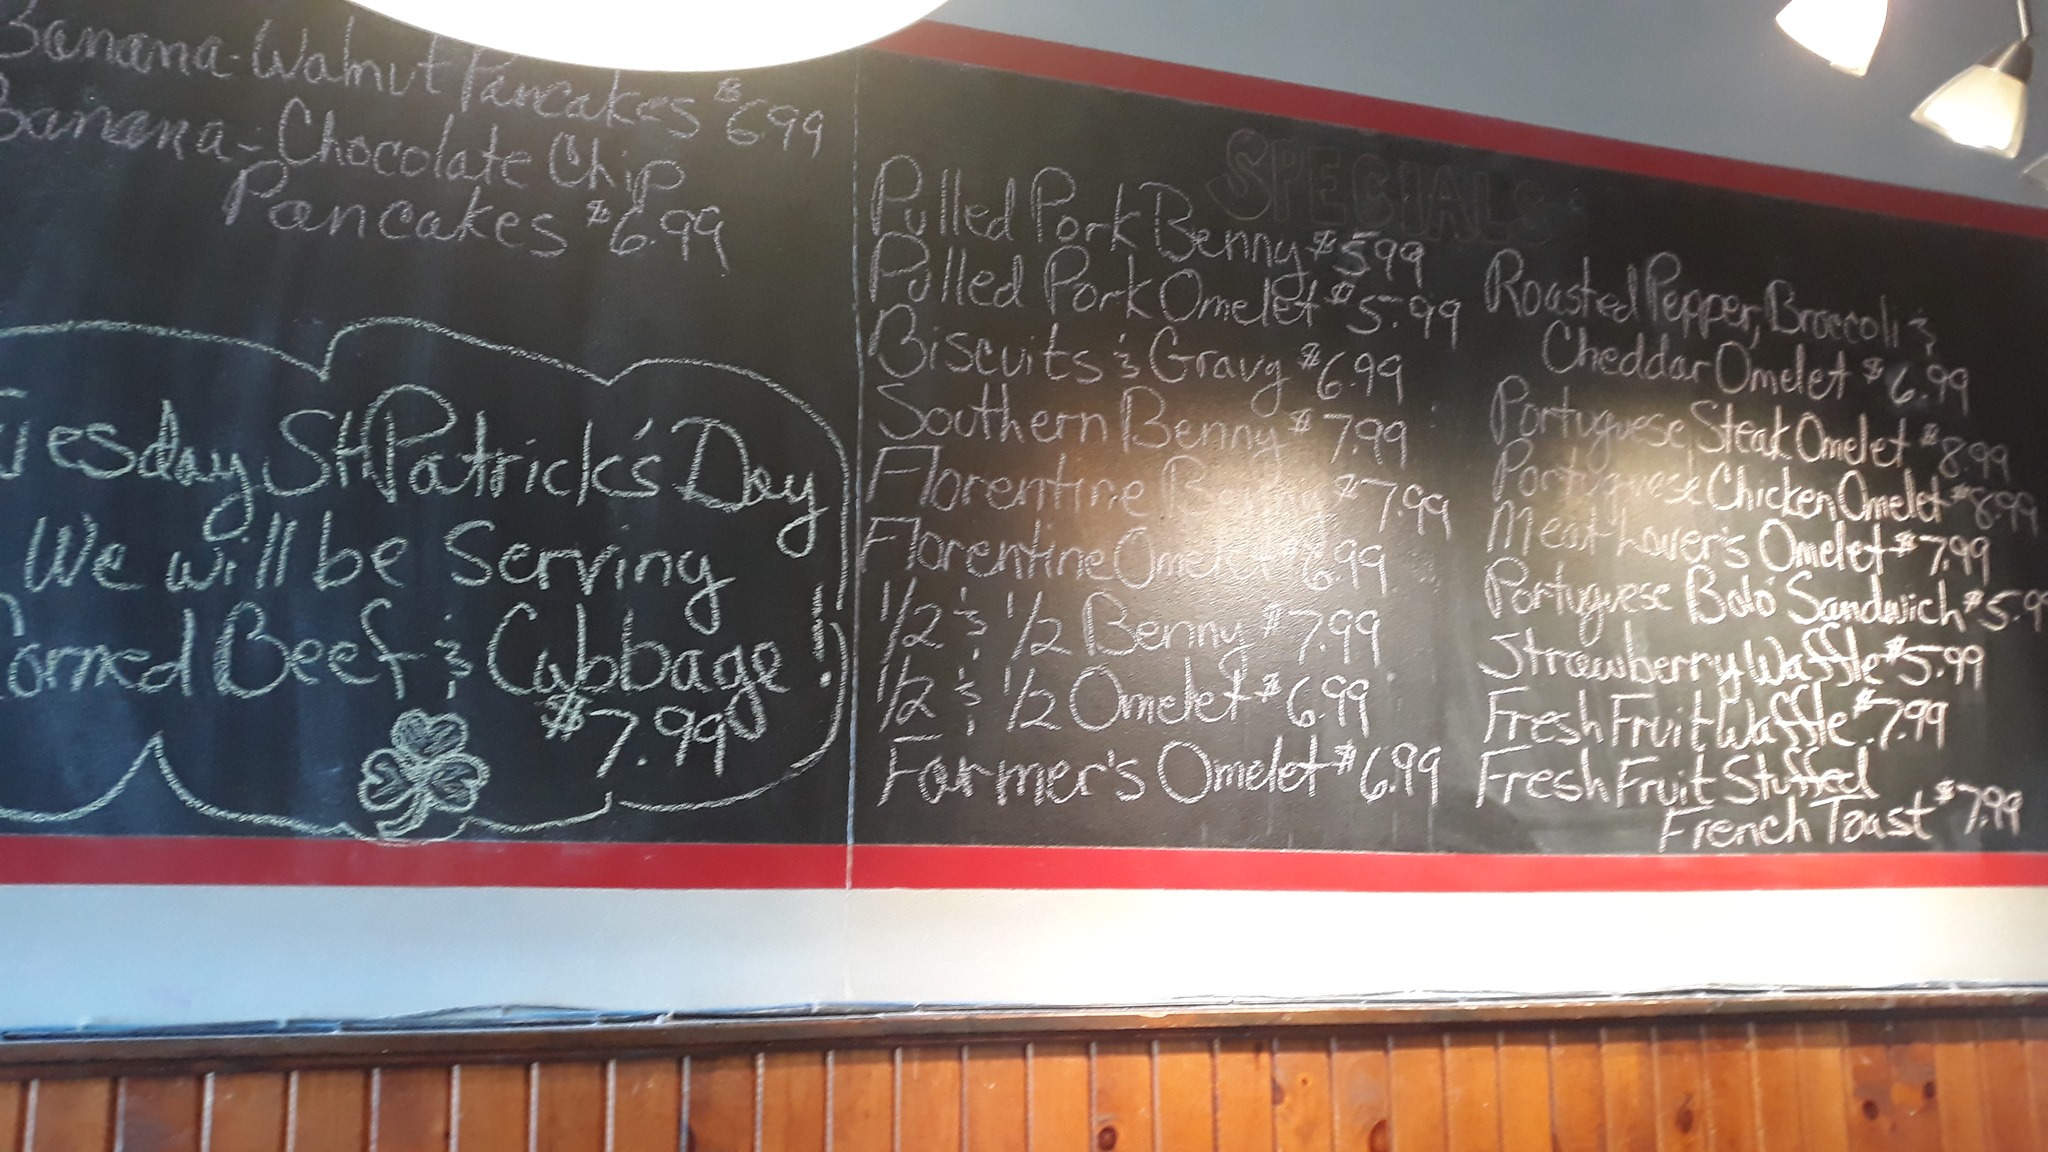 Banana-Walnut Pancakes $6.99
Banana-Chocolate Chip
Pancakes $6.99
Tuesday St. Patrick's Day
We will be Serving
Corned Beef & Cabbage!
$7.99
SPECIALS
Pulled Pork Benny $5.99
Pulled Pork Omelet $5.99
Biscuits & Gravy $6.99
Southern Benny $7.99
Florentine Benny $7.99
Florentine Omelet $6.99
1/2 & 1/2 Benny $7.99
1/2 & 1/2 Omelet $6.99
Farmer's Omelet $6.99
Roasted Pepper, Broccoli &
Cheddar Omelet $6.99
Portuguese Steak Omelet $8.99
Portuguese Chicken Omelet $8.99
Meat Lover's Omelet $7.99
Portuguese Bolo Sandwich $5.99
Strawberry Waffle $5.99
Fresh Fruit Waffle $7.99
Fresh Fruit Stuffed
French Toast $7.99